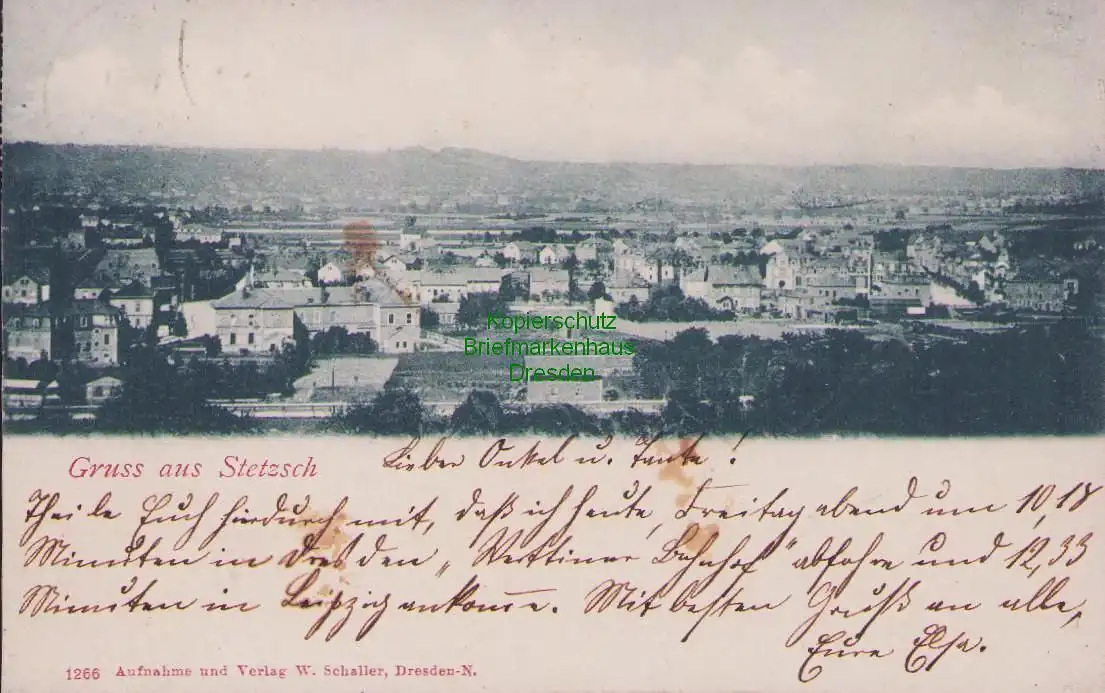 Kopierschutz
Briefmarkenhaus
Dresden
Gruss aus Stetzsch
Lieber Onkel u. Tante!
Theile Euch hierdurch mit, daß ich heute, Freitag abend um 10,18
Minuten in Dresden „Wettiner Bahnhof" abfahre und 12,33
Minuten in Leipzig ankome. Mit besten Gruß an alle,
Eure Elsa.
1266 Aufnahme und Verlag W. Schaller, Dresden-N.